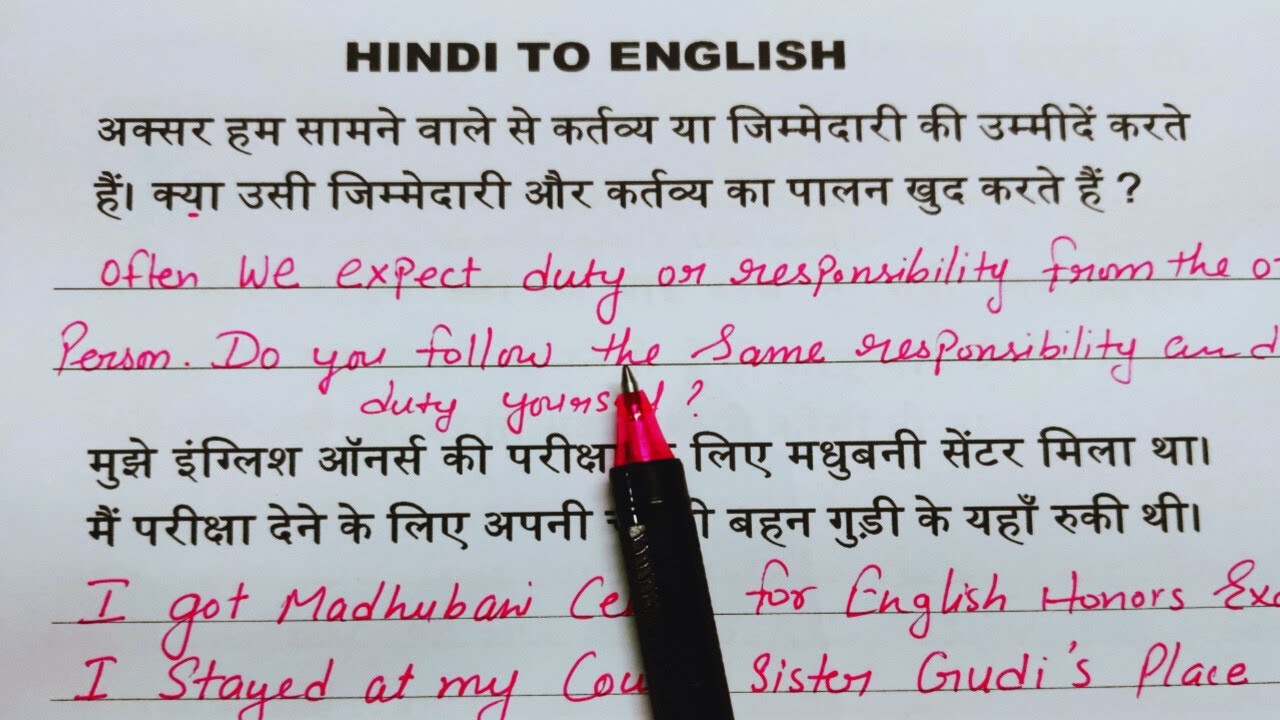 HINDI TO ENGLISH
अक्सर हम सामने वाले से कर्तव्य या जिम्मेदारी की उम्मीदें करते
हैं। क्या उसी जिम्मेदारी और कर्तव्य का पालन खुद करते हैं ?
Often We expect duty or responsibility from the
Person. Do you follow the Same responsibility and
duty ?
मुझे इंग्लिश ऑनर्स की परीक्षा लिए मधुबनी सेंटर मिला था।
मैं परीक्षा देने के लिए अपनी बहन गुड़ी के यहाँ रुकी थी।
I got Madhubani for English Honors
I Stayed at my Sister Gudi's Place